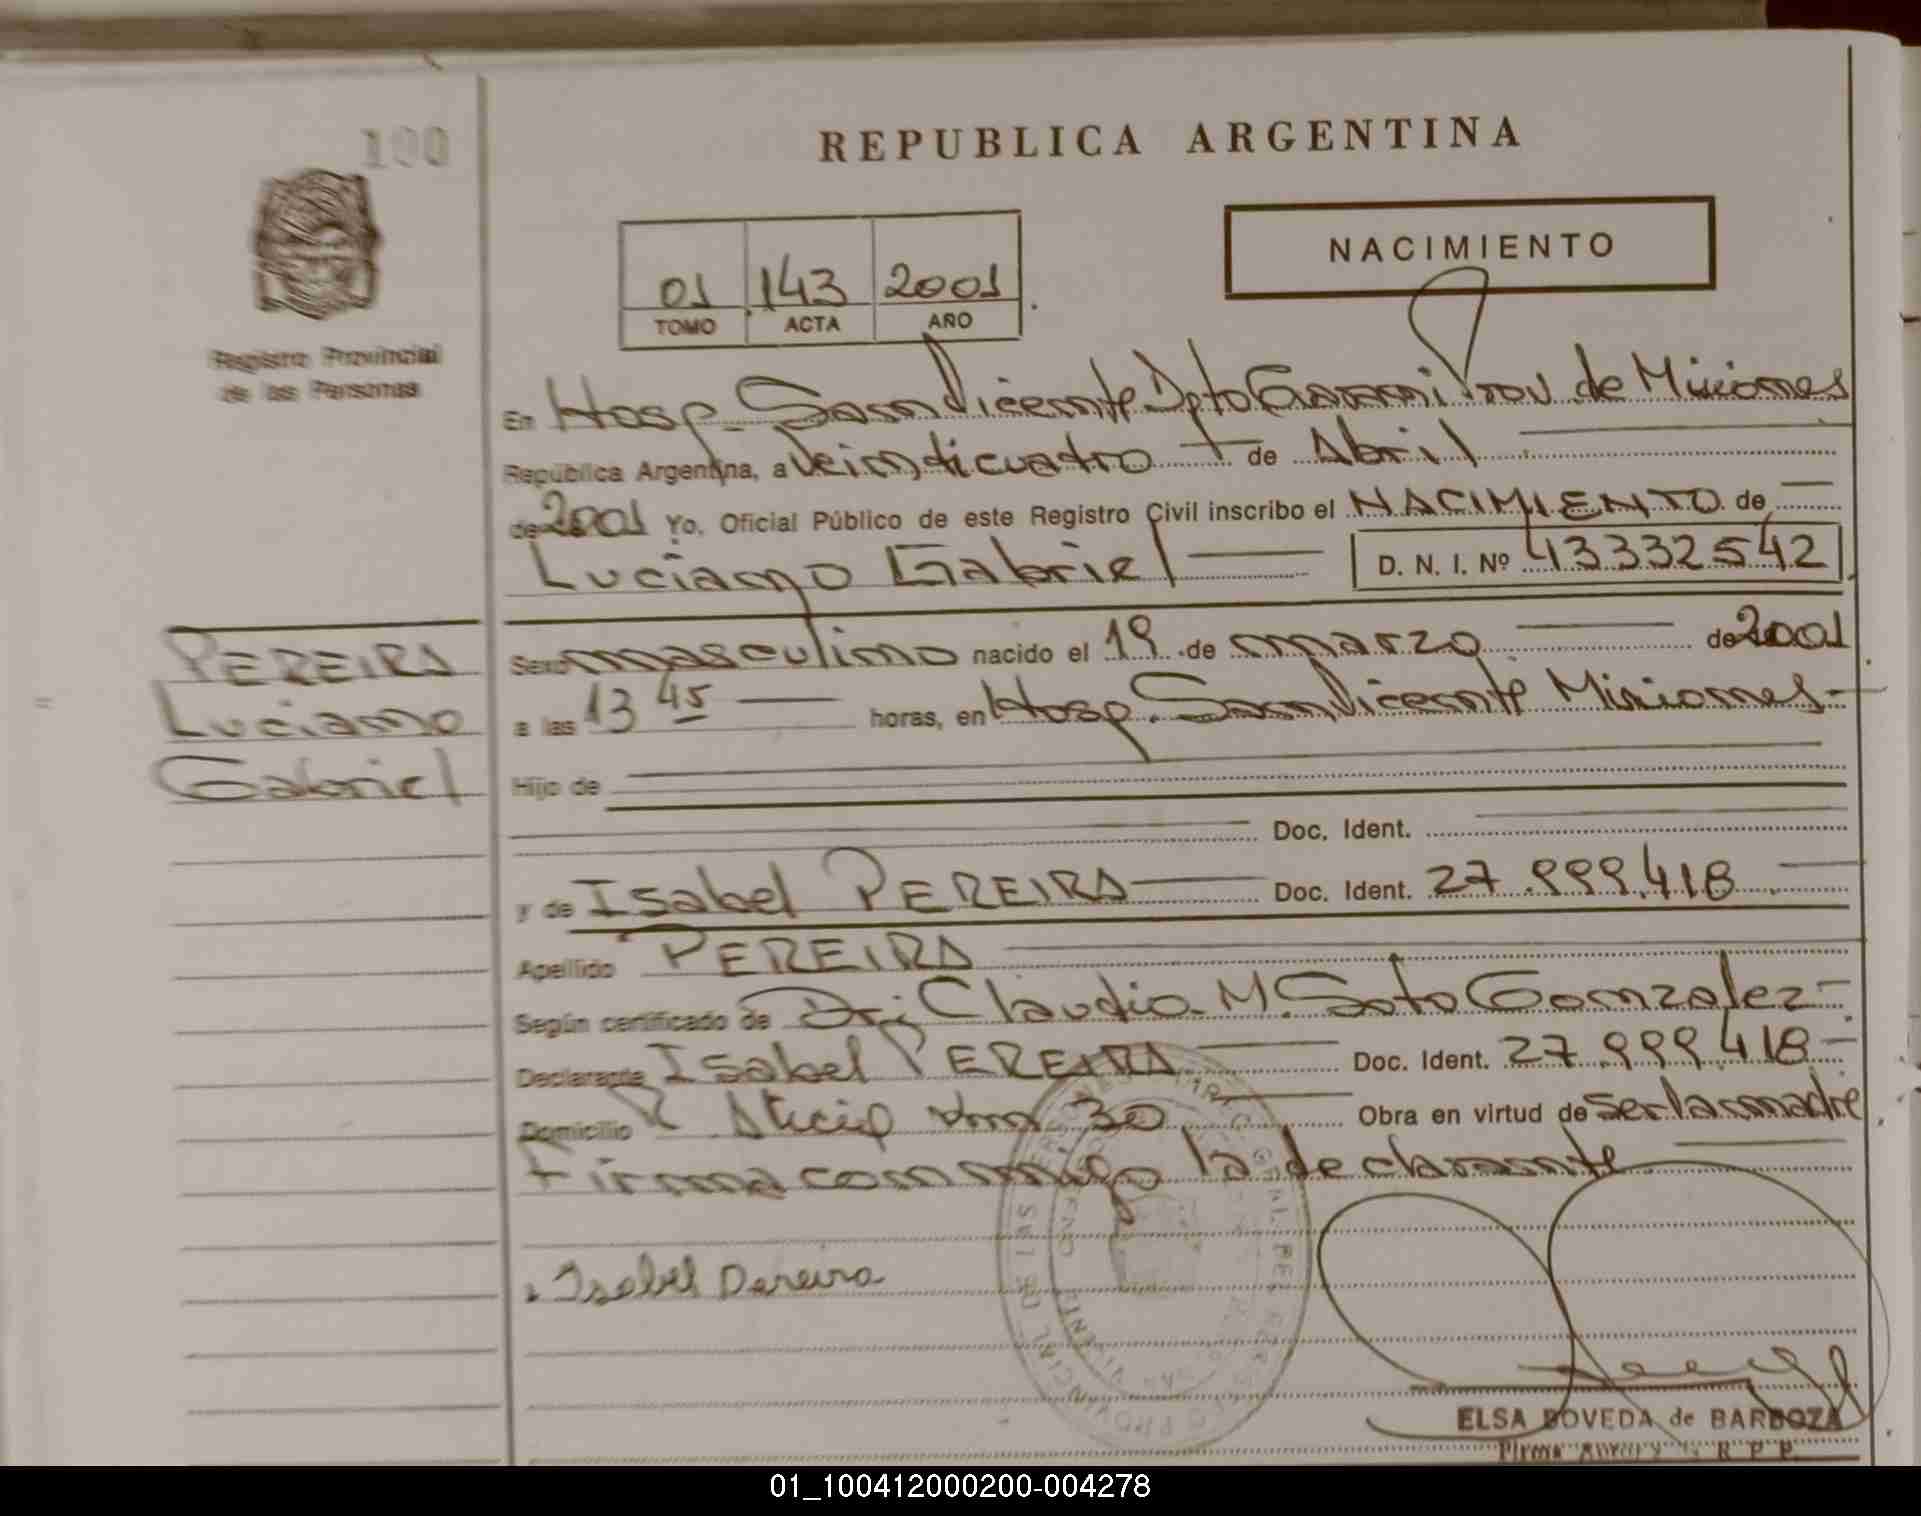 190
REPUBLICA ARGENTINA
NACIMIENTO
01 143 2001
TOMO ACTA AÑO
Registro Provincial
de las Personas
En Hosp. San Vicente Dpto Guarani Prov. de Misiones
República Argentina, a Veinticuatro de Abril
de 2001 Yo, Oficial Público de este Registro Civil inscribo el NACIMIENTO de
Luciano Gabriel D. N. I. Nº 43332542
PEREIRA
Luciano
Gabriel
Sexo masculino nacido el 19 de marzo de 2001
a las 13 45 horas, en Hosp. San Vicente Misiones
Hijo de
Doc. Ident.
y de Isabel PEREIRA Doc. Ident. 27.999.418
Apellido PEREIRA
Según certificado de Dr: Claudio M. Soto Gonzalez
Declarante Isabel PEREIRA Doc. Ident. 27.999.418
Domicilio km 30 Obra en virtud de ser la madre
Firma conmigo la declarante
Isabel Pereira
ELSA BOVEDA de BARBOZA
R. P. P.
01_100412000200-004278